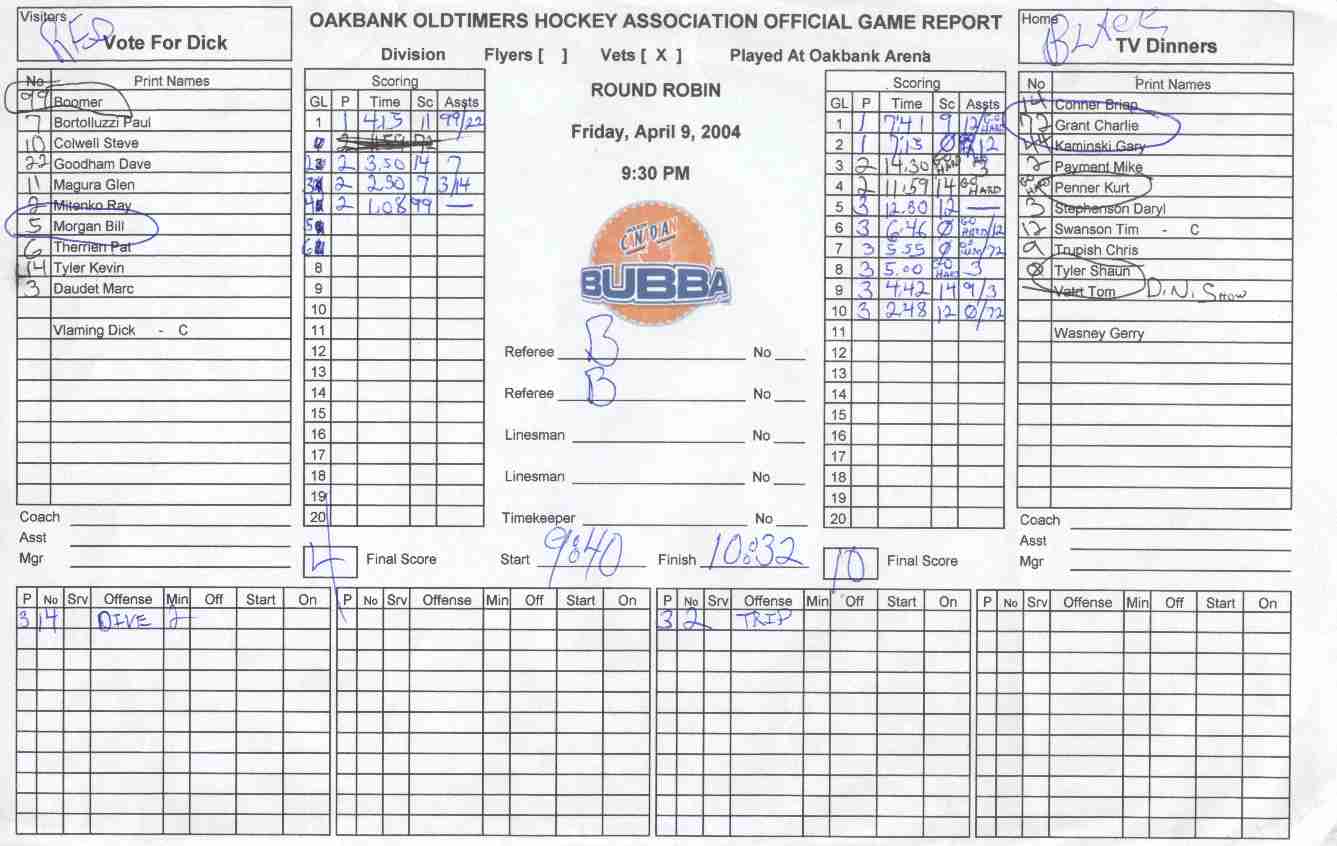 Visitors RED Vote For Dick
OAKBANK OLDTIMERS HOCKEY ASSOCIATION OFFICIAL GAME REPORT
Home BLACK TV Dinners
Division Flyers [ ] Vets [ X ] Played At Oakbank Arena
ROUND ROBIN
Friday, April 9, 2004
9:30 PM
CANADIAN BUBBA
No Print Names
99 Boomer
7 Bortolluzzi Paul
10 Colwell Steve
22 Goodham Dave
11 Magura Glen
2 Mitenko Ray
5 Morgan Bill
6 Therrien Pat
14 Tyler Kevin
3 Daudet Marc
Vlaming Dick - C
Scoring
GL P Time Sc Assts
1 1 4.15 11 99/22
2 2 3.50 14 7
3 2 2.30 7 3/14
4 2 1.08 99 —
5
6
8
9
10
11
12
13
14
15
16
17
18
19
20
Referee B No
Referee B No
Linesman No
Linesman No
Timekeeper No
Start 9:40 Finish 10:32
Scoring
GL P Time Sc Assts
1 1 7:41 9 12/GO HARD
2 1 7:15 0 12
3 2 14.30 GO HARD 3
4 2 11:59 14 GO HARD
5 3 12.30 12 —
6 3 6.46 0 GO HARD/12
7 3 5.55 0 /72
8 3 5.00 GO HARD 3
9 3 4.42 14 9/3
10 3 2.48 12 0/72
11
12
13
14
15
16
17
18
19
20
No Print Names
14 Conner Brian
72 Grant Charlie
44 Kaminski Gary
2 Payment Mike
GO HARD Penner Kurt
3 Stephenson Daryl
12 Swanson Tim - C
9 Trupish Chris
0 Tyler Shaun
Vatrt Tom D.N. Show
Wasney Gerry
Coach
Asst
Mgr
4 Final Score
10 Final Score
Coach
Asst
Mgr
P No Srv Offense Min Off Start On
3 14 DIVE 2
P No Srv Offense Min Off Start On
P No Srv Offense Min Off Start On
3 2 TRIP
P No Srv Offense Min Off Start On